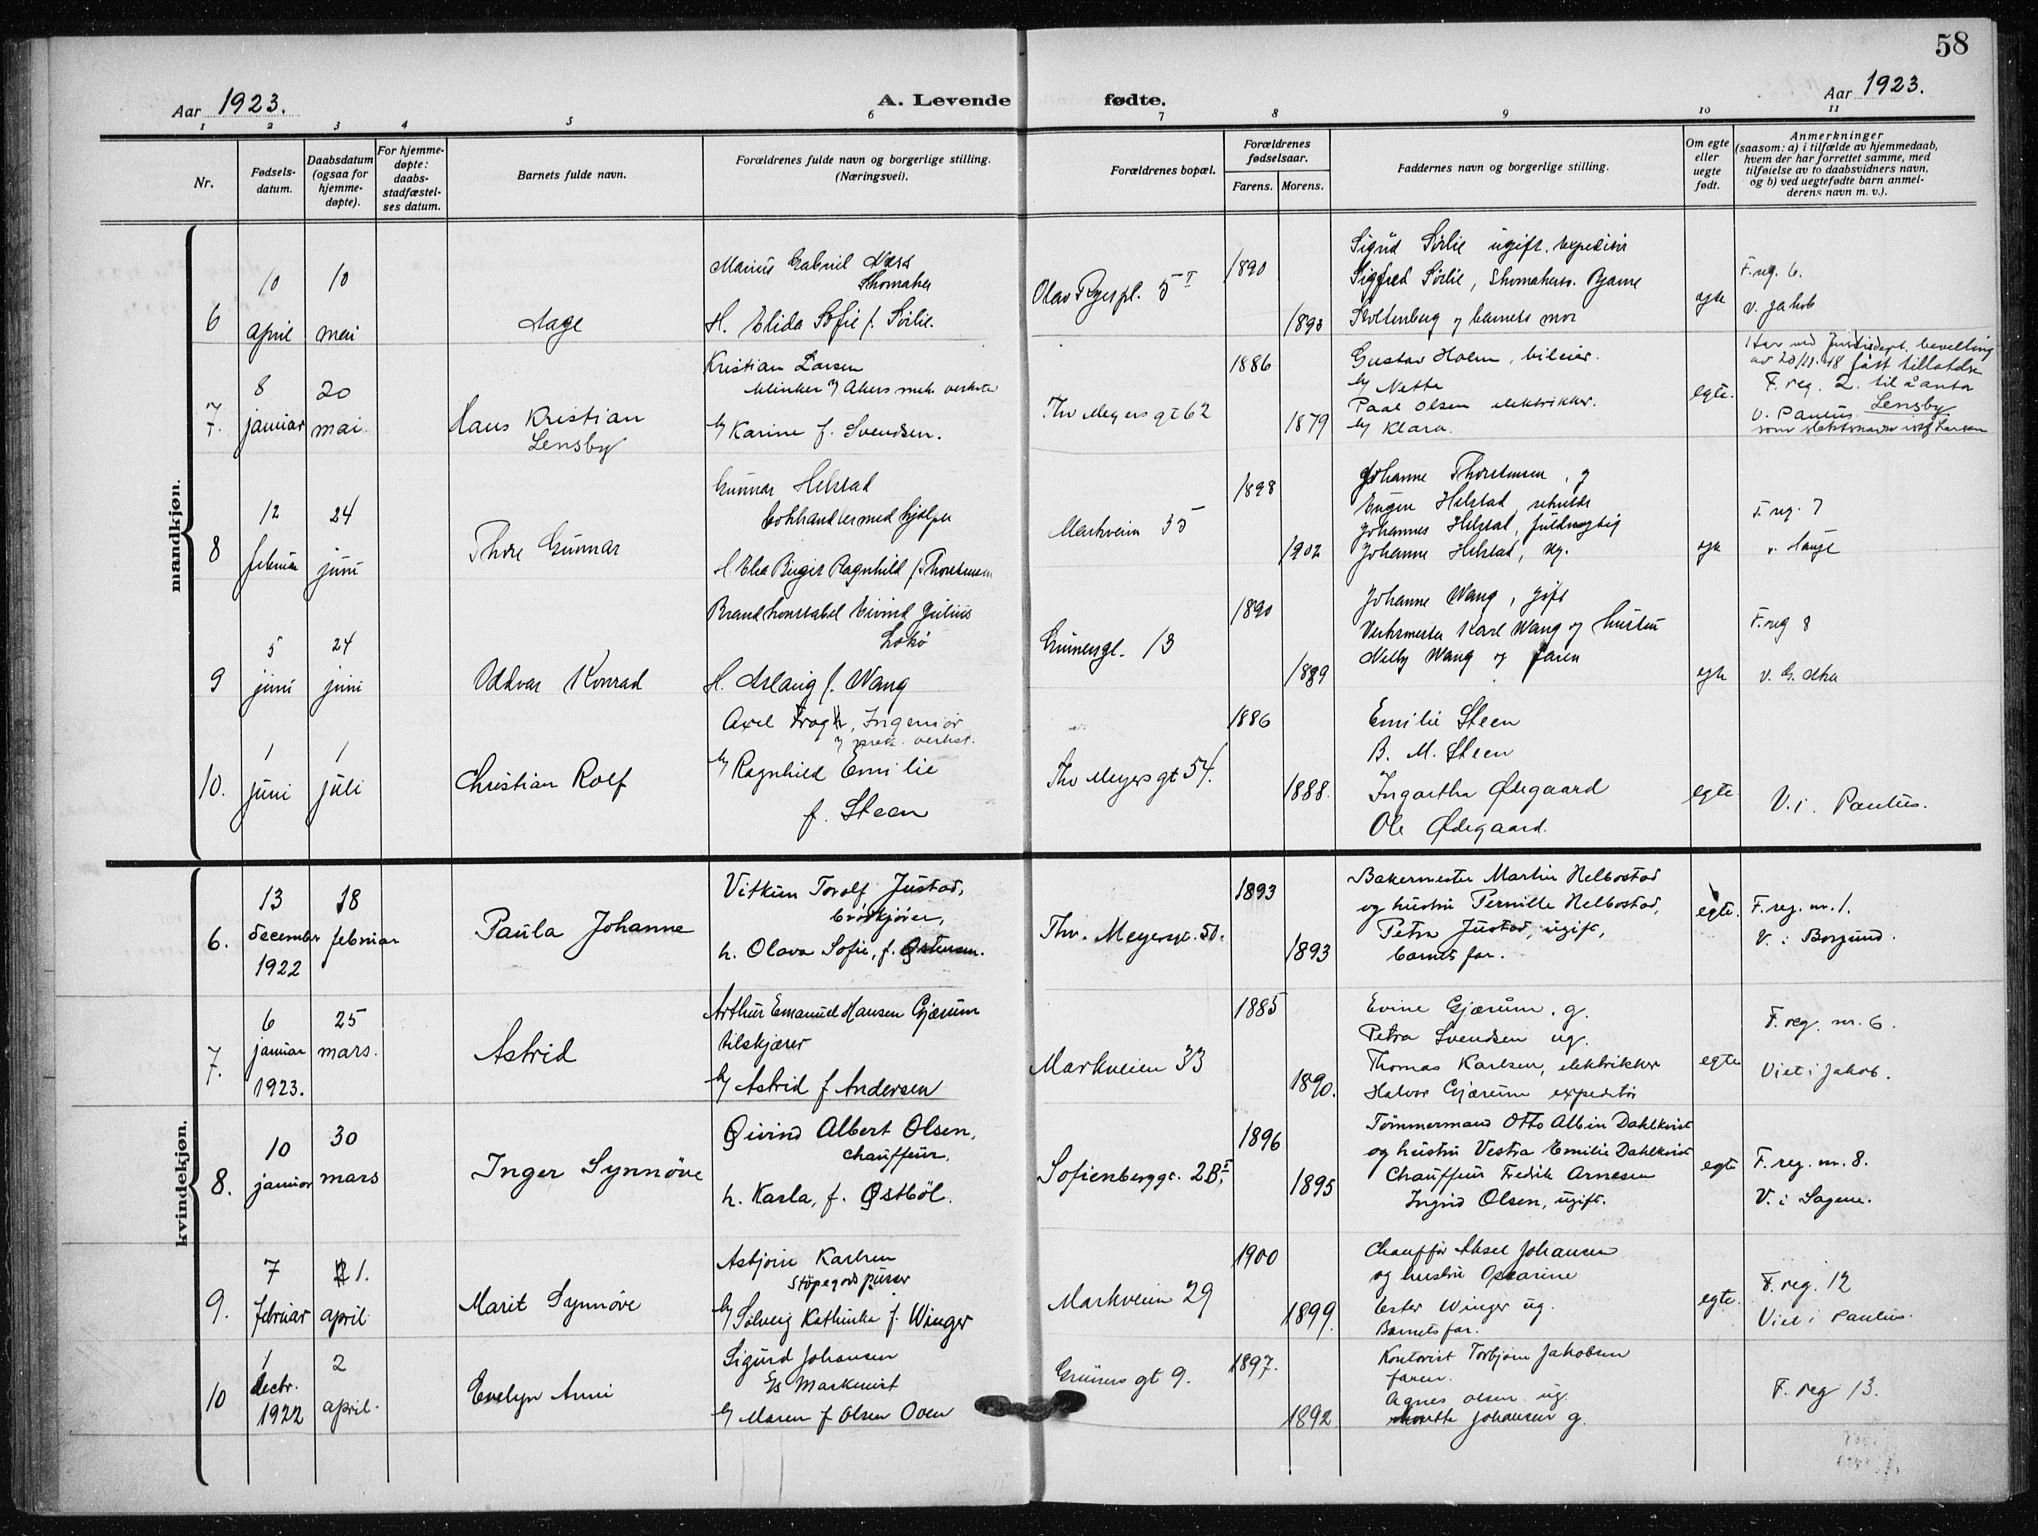 58
Aar 1923.
A. Levende fødte.
Aar 1923.
1 2 3 4 5 6 7 8 9 10 11
Nr.
Fødsels-
datum.
Daabsdatum
(ogsaa for
hjemme-
døpte).
For hjemme-
døpte:
daabs-
stadfæstel-
ses datum.
Barnets fulde navn.
Forældrenes fulde navn og borgerlige stilling.
(Næringsvei).
Forældrenes bopæl.
Forældrenes
fødselsaar.
Farens. Morens.
Faddernes navn og borgerlige stilling.
Om egte
eller
uegte
født.
Anmerkninger
(saasom: a) i tilfælde av hjemmedaab,
hvem der har forrettet samme, med
tilføielse av to daabsvidners navn,
og b) ved uegtefødte barn anmel-
derens navn m. v.).
mandkjøn.
6
10
april
10
mai
Aage
Marius Gabriel
Skomaker
H. Elida Sofie f. Sörlie.
Olav Ryespl. 5 I
1890
1893
Sigrid Sörlie ugift. expeditör
Sigfred Sörlie, Skomakers. Bjarne
Stoltenberg og barnets mor
egte
F. reg. 6.
v. Jakob
7.
8
januar
20
mai.
Hans Kristian
Lensby
Kristian Larsen
klinker v/ Akers mek. verksted
h/ Karine f. Svendsen.
Thv Meyers gt 62
1886
1879
Gustav Holm, bileier.
h/ Netta
Paal Olsen elektrikker.
h/ Klara.
egte.
Har ved Justisdept. bevilling
av 20/11.48 fått tillatelse
F. reg. 2. til å anta
v. Paulus. Lensby
som slektsnavn istf. Larsen
8
12
februar
24
juni
Thore Gunnar
Gunnar Helstad
H. Elsa Birgit Ragnhild f. Thorstensen
Markveien 35
1898
1902
Johanne Thorstensen, og
Eugen Helstad,
Johannes Helstad, fuldmegtig
Johanne Helstad, ug.
egte
F. reg. 7
v. Hauge
9
5
juni
24
juni
Oddvar Konrad
Brandkonstabel Eivind Julius
Lokö
H. Aslaug f. Wang
Grünersgt. 13
1890
1889
Johanne Wang, gift
Verksmester Karl Wang og hustru
Nelly Wang og faren
egte
F. reg 8
v. G. Aker
10.
1
juni
1
juli
Christian Rolf
Axel Krogh, Ingeniør
v/ verkst.
h/ Ragnhild Emilie
f. Steen
Thv Meyers gt 54.
1886
1888.
Emilie Steen
B. M. Steen
Ingartha Ødegaard
Ole Ødegaard.
egte
V. i. Paulus.
kvindekjøn.
6.
13
december
1922
18
februar
Paula Johanne
Vitkun Torolf Justad,
brödkjörer,
h. Olava Sofie, f. Østensen.
Thv. Meyersgt. 50.
1893
1893
Bakermester Martin Helbostad
og hustru Pernille Helbostad,
Petra Justad, ugift,
barnets far.
egte.
F. reg. nr. 1.
V. i Borgund.
7.
6
januar
1923.
25
mars.
Astrid
Arthur Emanuel Hansen Gjærum
tilskjærer
h/ Astrid f Andersen
Markveien 33
1885
1890.
Evine Gjærum. g.
Petra Svendsen ug.
Thomas Karlsen, elektrikker
Halvor Gjærum expeditör
egte
F. reg. nr. 6.
Viet i Jakob.
8.
10
januar
30
mars
Inger Synnöve
Øivind Albert Olsen,
chauffeur.
h. Karla, f. Østböl.
Sofienberggt. 2B I,
1896
1895
Tömmermand Otto Albin Dahlkvist
og hustru Vestra Emilie Dahlkvist
Chauffeur Fredik Arnesen
Ingrid Olsen, ugift.
egte
F. reg. nr. 8.
V. i Sagene.
9.
7
februar
1.
april
Marit Synnöve
Asbjörn Karlsen
Støpegodspusser
h/ Solveig Kathinka f. Winger
Markveien 29
1900
1899.
Chauffør Aksel Johansen
og hustru Oskarine
Ester Winger ug.
Barnets far.
egte.
F. reg. 12
Viet i Paulus.
10
1
decbr.
1922
2
april.
Evelyn Anni
Sigurd Johansen
h/ Maren f Olsen Oven
Grüners gt 9.
1897.
1892
Kontorist Torbjörn Jakobsen
faren.
Agnes Olsen ug.
Johansen g.
F. reg 13.